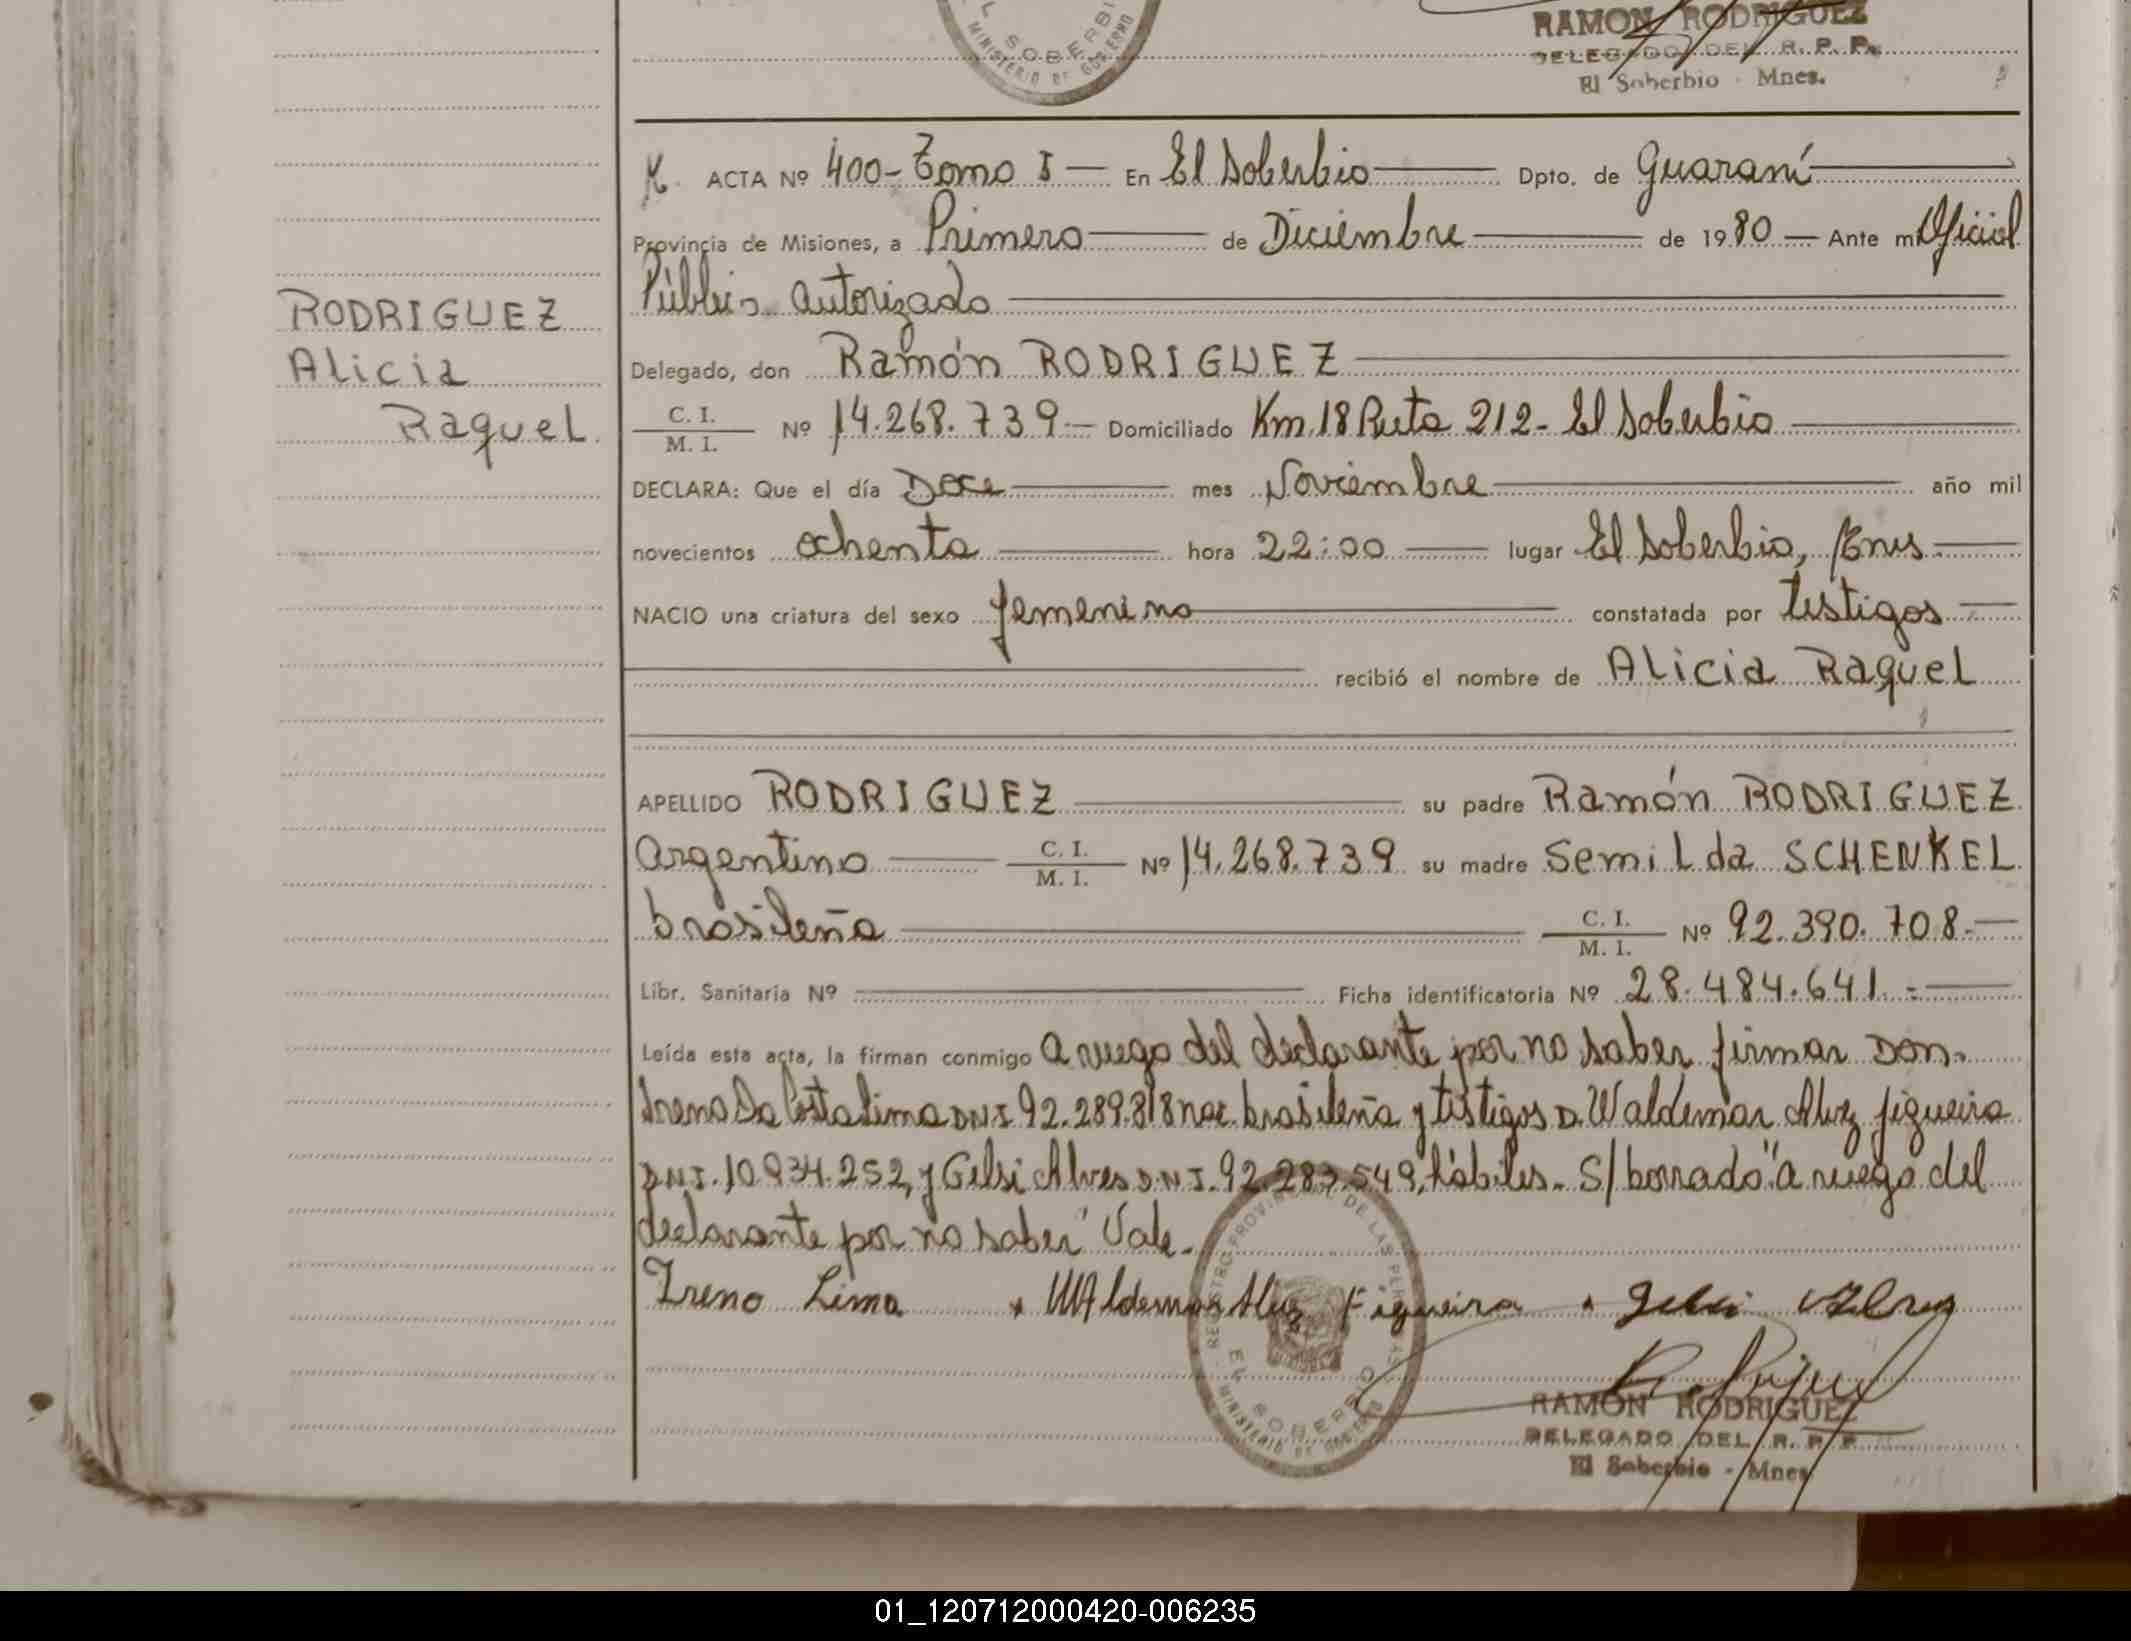 EL SOBERBI
MINISTERIO DE GOBIERNO
RAMON RODRIGUEZ
DELEGADO DEL R. P. P.
El Soberbio - Mnes.
ACTA Nº 400- Tomo I — En El Soberbio — Dpto. de Guaraní
Provincia de Misiones, a Primero — de Diciembre — de 1980 — Ante mi Oficial
Público autorizado
RODRIGUEZ
Alicia
Raquel
Delegado, don Ramón RODRIGUEZ
C. I. / M. I. Nº 14.268.739 — Domiciliado Km 18 Ruta 212- El Soberbio
DECLARA: Que el día Doce — mes Noviembre — año mil
novecientos ochenta — hora 22:00 — lugar El Soberbio, Mnes
NACIO una criatura del sexo femenino — constatada por testigos
recibió el nombre de Alicia Raquel
APELLIDO RODRIGUEZ — su padre Ramón RODRIGUEZ
argentino — C. I. / M. I. Nº 14.268.739 su madre Semilda SCHENKEL
brasileña — C. I. / M. I. Nº 92.390.708.-
Libr. Sanitaria Nº — Ficha identificatoria Nº 28.484.641.-
Leída esta acta, la firman conmigo a ruego del declarante por no saber firmar Don.
Ireno Da Costa Lima DNI 92.289.818 nac. brasileña y testigos D. Waldemar Alvez figueira
DNI. 10.934.252, y Gelsi Alves DNI. 92.283.549, hábiles.- S/ borrado "a ruego del
declarante por no saber" Vale.-
Ireno Lima * WAldemar Alvez Figueira * Gelsi Alves
REGISTRO PROVINCIAL DE LAS PERSONAS
EL SOBERBIO
MINISTERIO DE GOBIERNO
RAMON RODRIGUEZ
DELEGADO DEL R. P. P.
El Soberbio - Mnes
01_120712000420-006235